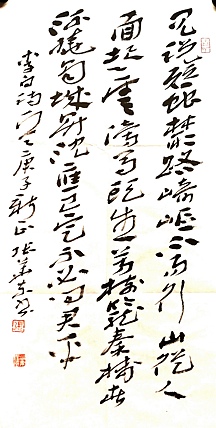 见说蚕叢路崎岖不易行山從人
面起云傍马头生芳树笼秦栈春
流绕蜀城升沉應已定不必问君平
李白诗庚子新正张